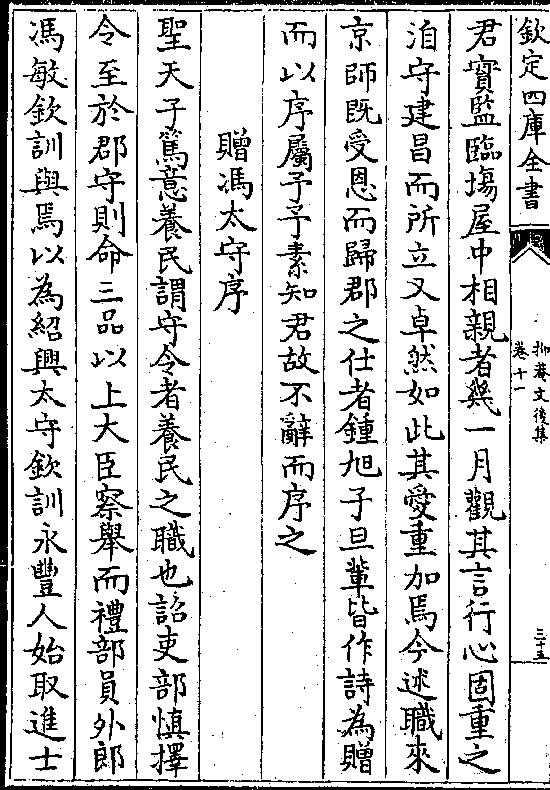 欽定四庫全書
抑菴文後集
卷十一
三十五
君實監臨塲屋中相親者幾一月觀其言行心固重之
洎守建昌而所立又卓然如此其愛重加焉今述職來
京師既受恩而歸郡之仕者鍾旭子旦軰皆作詩為贈
而以序屬予予素知君故不辭而序之
贈馮太守序
聖天子篤意養民謂守令者養民之職也詔吏部慎擇
令至於郡守則命三品以上大臣察舉而禮部員外郎
馮敏欽訓與焉以為紹興太守欽訓永豐人始取進士